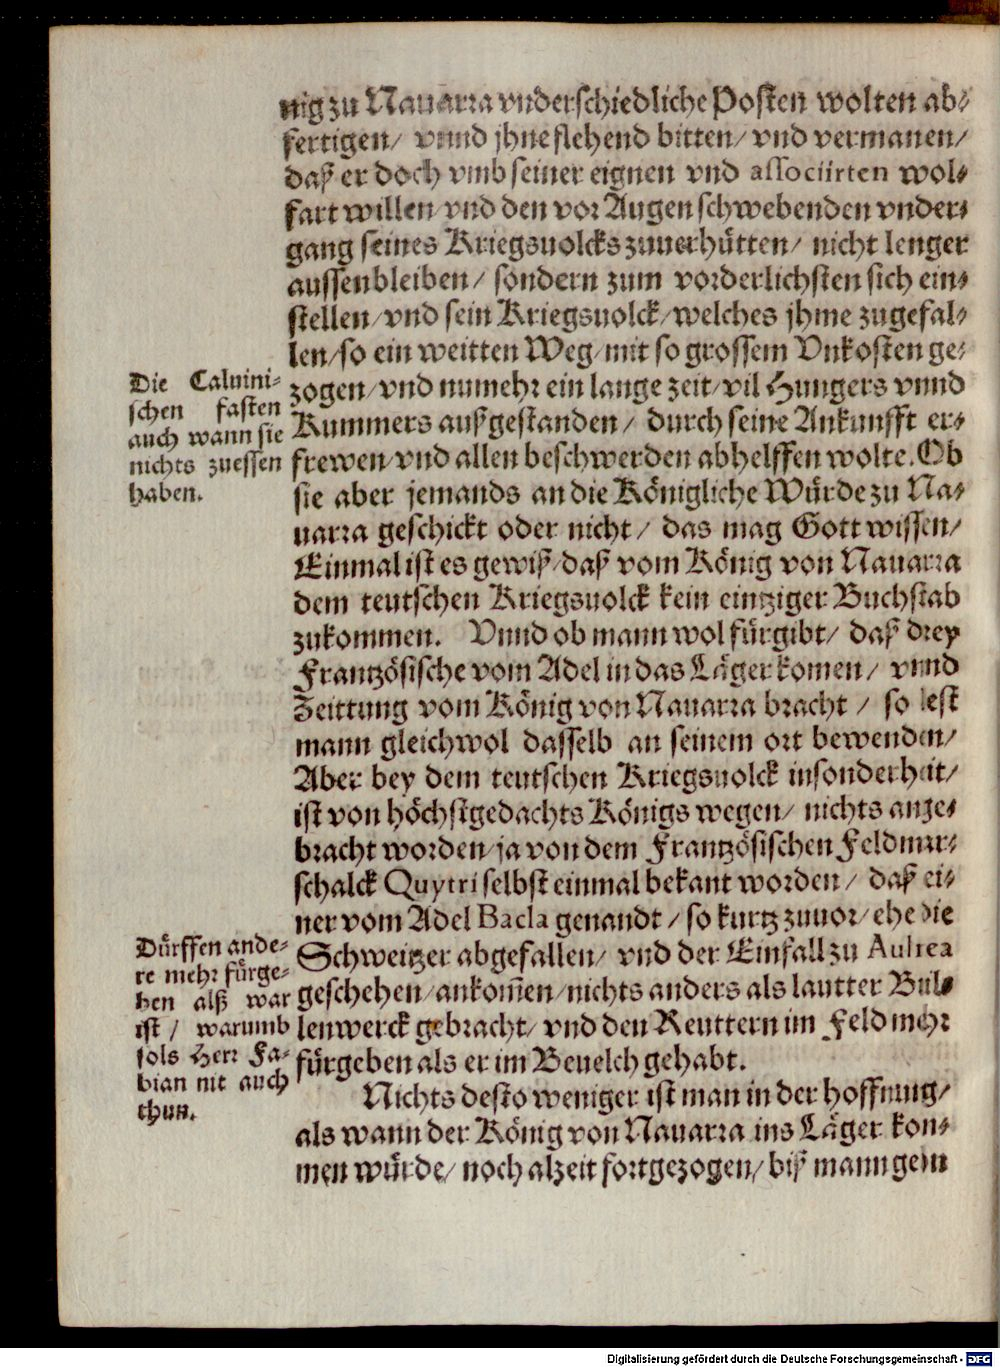 nig zu Nauarra vnderschiedliche Posten wolten ab-
fertigen/ vnnd jhne flehend bitten/ vnd vermanen/
daß er doch vmb seiner eignen vnd associirten wol-
fart willen vnd den vor Augen schwebenden vnder-
gang seines Kriegsuolcks zuuerhütten/ nicht lenger
aussenbleiben/ sondern zum vorderlichsten sich ein-
stellen/ vnd sein Kriegsuolck/ welches jhme zugefal-
len/ so ein weitten Weg/ mit so grossem Vnkosten ge-
zogen/ vnd numehr ein lange zeit/ vil Hungers vnnd
Kummers außgestanden/ durch seine Ankunfft er-
frewen/ vnd allen beschwerden abhelffen wolte. Ob
sie aber jemands an die Königliche Würde zu Na-
uarra geschickt oder nicht/ das mag Gott wissen/
Einmal ist es gewiß/ daß vom König von Nauarra
dem teutschen Kriegsuolck kein eintziger Buchstab
zukommen. Vnnd ob mann wol fürgibt/ daß drey
Frantzösische vom Adel in das Läger komen/ vnnd
Zeittung vom König von Nauarra bracht/ so lest
mann gleichwol dasselb an seinem ort bewenden/
Aber bey dem teutschen Kriegsuolck insonderheit/
ist von höchstgedachts Königs wegen/ nichts ange-
bracht worden/ ja von dem Frantzösischen Feldmar-
schalck Quytri selbst einmal bekant worden/ daß ei-
ner vom Adel Bacla genandt/ so kurtz zuuor/ ehe die
Schweitzer abgefallen/ vnd der Einfall zu Aulnea
geschehen/ ankom̃en/ nichts anders als lautter Bul-
lenwerck gebracht/ vnd den Reuttern im Feld mehr
fürgeben als er im Beuelch gehabt.
Nichts desto weniger ist man in der hoffnung/
als wann der König von Nauarra ins Läger kon-
men würde/ noch alzeit fortgezogen/ biß mann gen
Die Caluini-
schen fasten
auch wann sie
nichts zuessen
haben.
Dürffen ande-
re mehr fürge-
ben alß war
ist/ warumb
sols Herr Fa-
bian nit auch
thun.
Digitalisierung gefördert durch die Deutsche Forschungsgemeinschaft - DFG